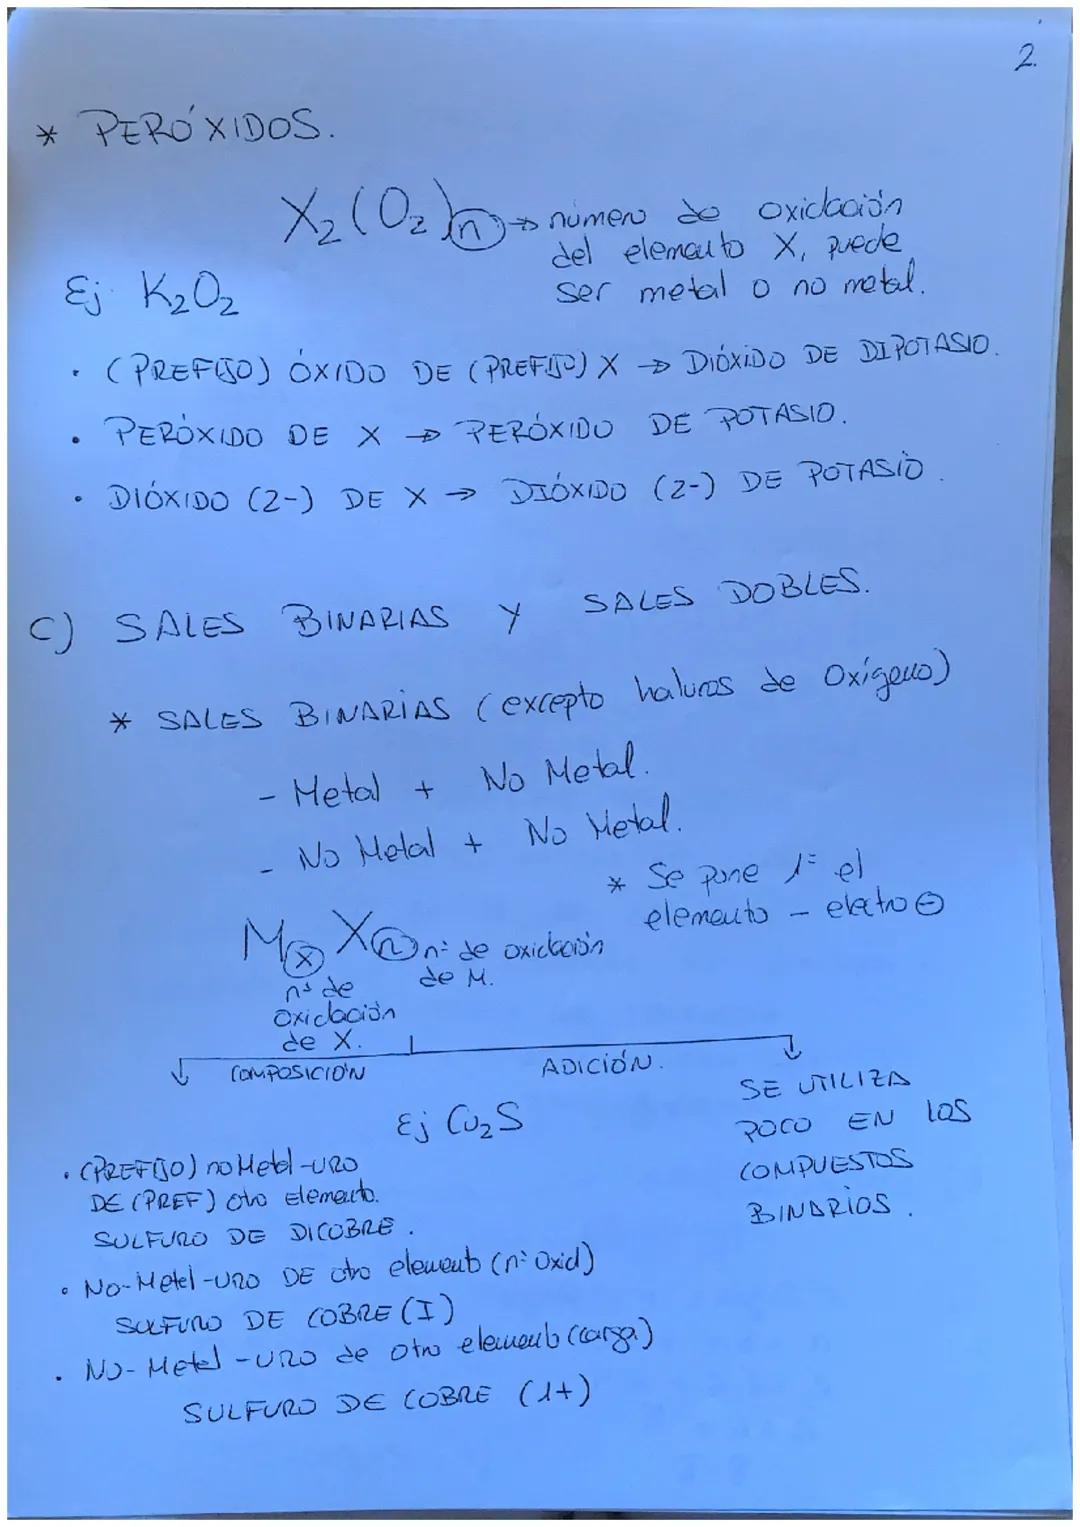 2.
* PERÓXIDOS.
X₂(O₂)n → número de oxidación
del elemento X, puede
ser metal o no metal.
Ej K₂O₂
· (PREFIJO) ÓXIDO DE (PREFIJO) X → DIÓXIDO DE DIPOTASIO.
· PERÓXIDO DE X → PERÓXIDO DE POTASIO.
· DIÓXIDO (2-) DE X → DIÓXIDO (2-) DE POTASIO.
C) SALES BINARIAS Y SALES DOBLES.
* SALES BINARIAS (excepto haluros de Oxígeno)
- Metal + No Metal.
- No Metal + No Metal.
* Se pone 1º el
elemento - electro ⊖
Mx Xn nº de oxidación
de M.
nº de
oxidación
de X.
COMPOSICIÓN
ADICIÓN.
SE UTILIZA
POCO EN LOS
COMPUESTOS
BINARIOS.
Ej Cu₂S
· (PREFIJO) no Metal -URO
DE (PREF) otro Elemento.
SULFURO DE DICOBRE.
· No-Metal -URO DE otro elemento (nº Oxid)
SULFURO DE COBRE (I)
· No-Metal -URO de otro elemento (carga)
SULFURO DE COBRE (1+)